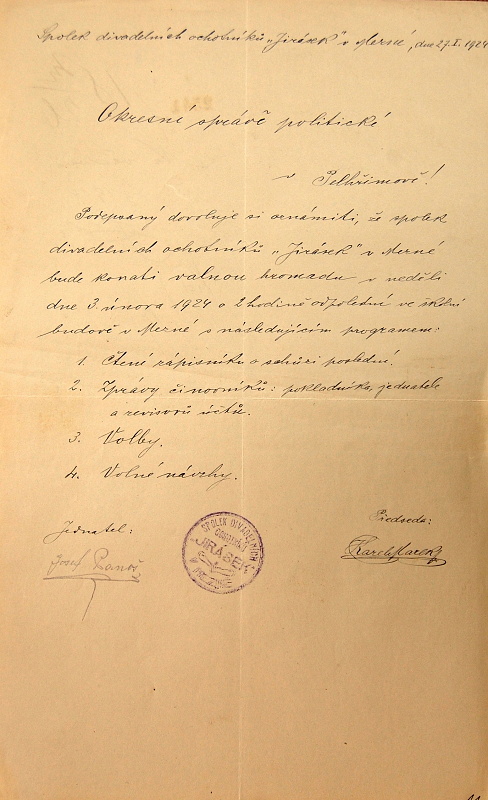 Spolek divadelních ochotníků „Jirásek" v Mezné, dne 27. I. 1924
Okresné správě politické
v Pelhřimově!
Podepsaný dovoluje si oznámiti, že spolek
divadelních ochotníků „Jirásek" v Mezné
bude konati valnou hromadu v neděli
dne 3. února 1924 o 2 hodině odpolední ve školní
budově v Mezné s následujícím programem:
1. Čtení zápisníku o schůzi poslední.
2. Zprávy činovníků: pokladníka, jednatele
a revisorů účtů.
3. Volby.
4. Volné návrhy.
Jednatel:
Předseda:
Josef
Karel
SPOLEK DIVADELNÍCH
OCHOTNÍKŮ
JIRÁSEK